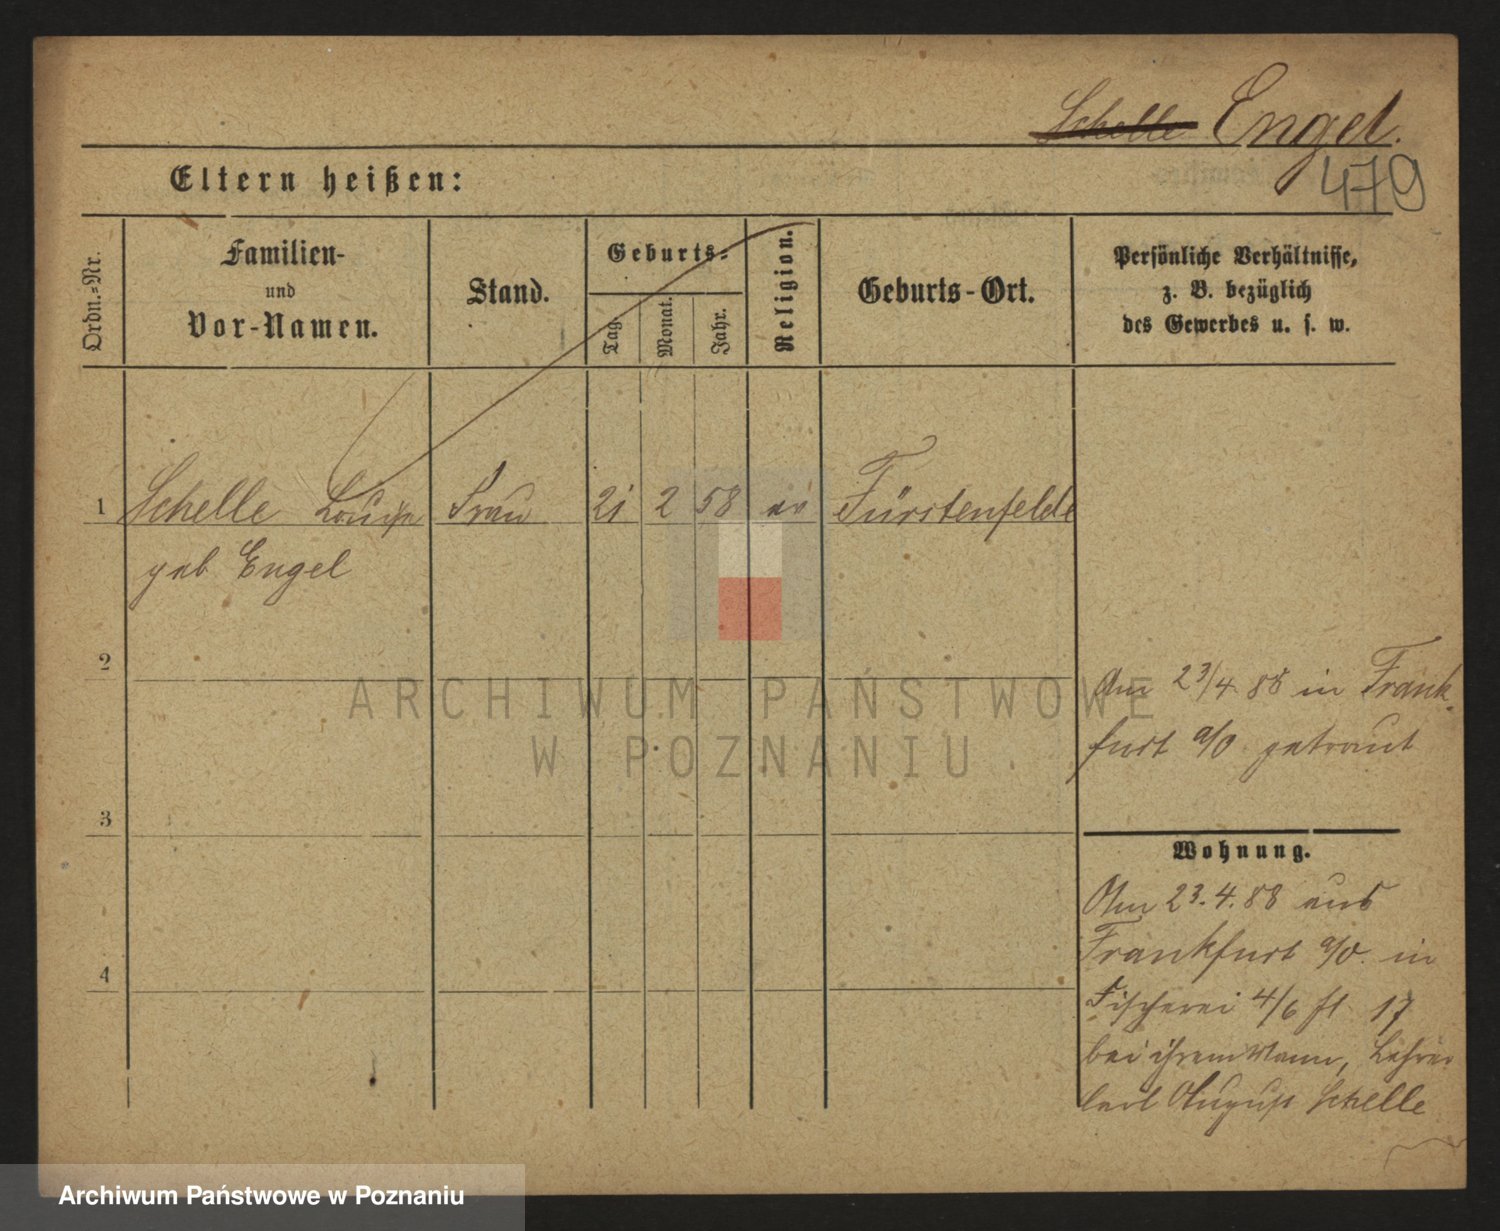 Schelle Engel.
479
Eltern heißen:
Ordn.=Nr.
Familien-
und
Vor-Namen.
Stand.
Geburts=
Tag.
Monat.
Jahr.
Religion.
Geburts-Ort.
Persönliche Verhältnisse,
z. B. bezüglich
des Gewerbes u. s. w.
1 Schelle Louise Frau 21 2 58 ev Fürstenfelde
geb Engel
2
Am 23/4 88 in Frank
furt a/O. getraut
3
Wohnung.
Am 23.4.88 aus
Frankfurt a/O. in
4
Fischerei 4/6 fl 17
bei ihrem Mann, Lehrer
Carl August Schelle
ARCHIWUM PAŃSTWOWE
W POZNANIU
Archiwum Państwowe w Poznaniu